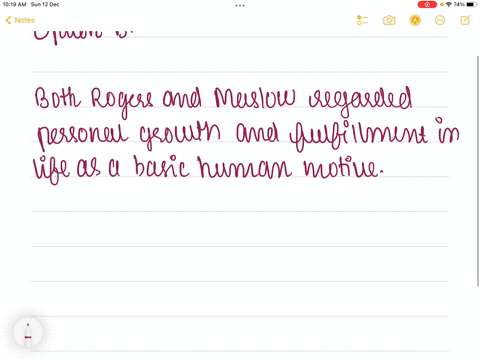 10:19 AM Sun 12 Dec
74%
Notes
Option B.
Both Rogers and Maslow regarded
personal growth and fulfillment in
life as a basic human motive.